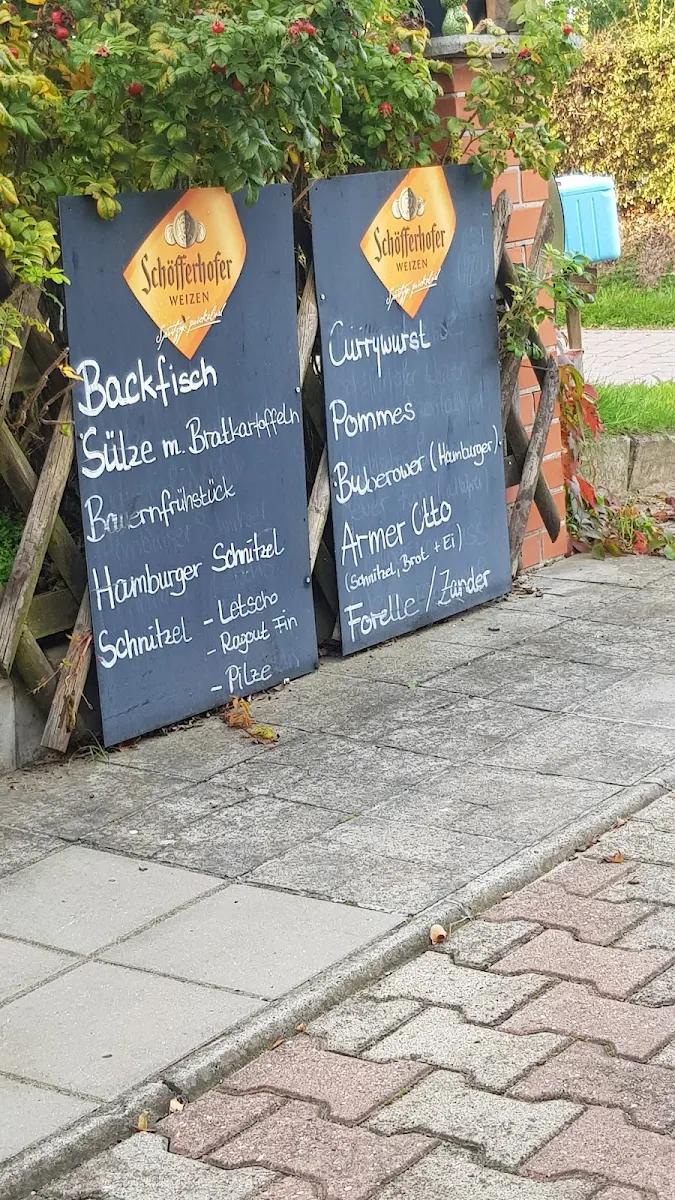 Schöfferhofer
WEIZEN
Backfisch
Sülze m. Bratkartoffeln
Bauernfrühstück
Hamburger Schnitzel
Schnitzel - Letscho
- Ragout Fin
- Pilze
Schöfferhofer
WEIZEN
Currywurst
Pommes
Buberower (Hamburger)
Armer Otto
(Schnitzel, Brot + Ei)
Forelle / Zander